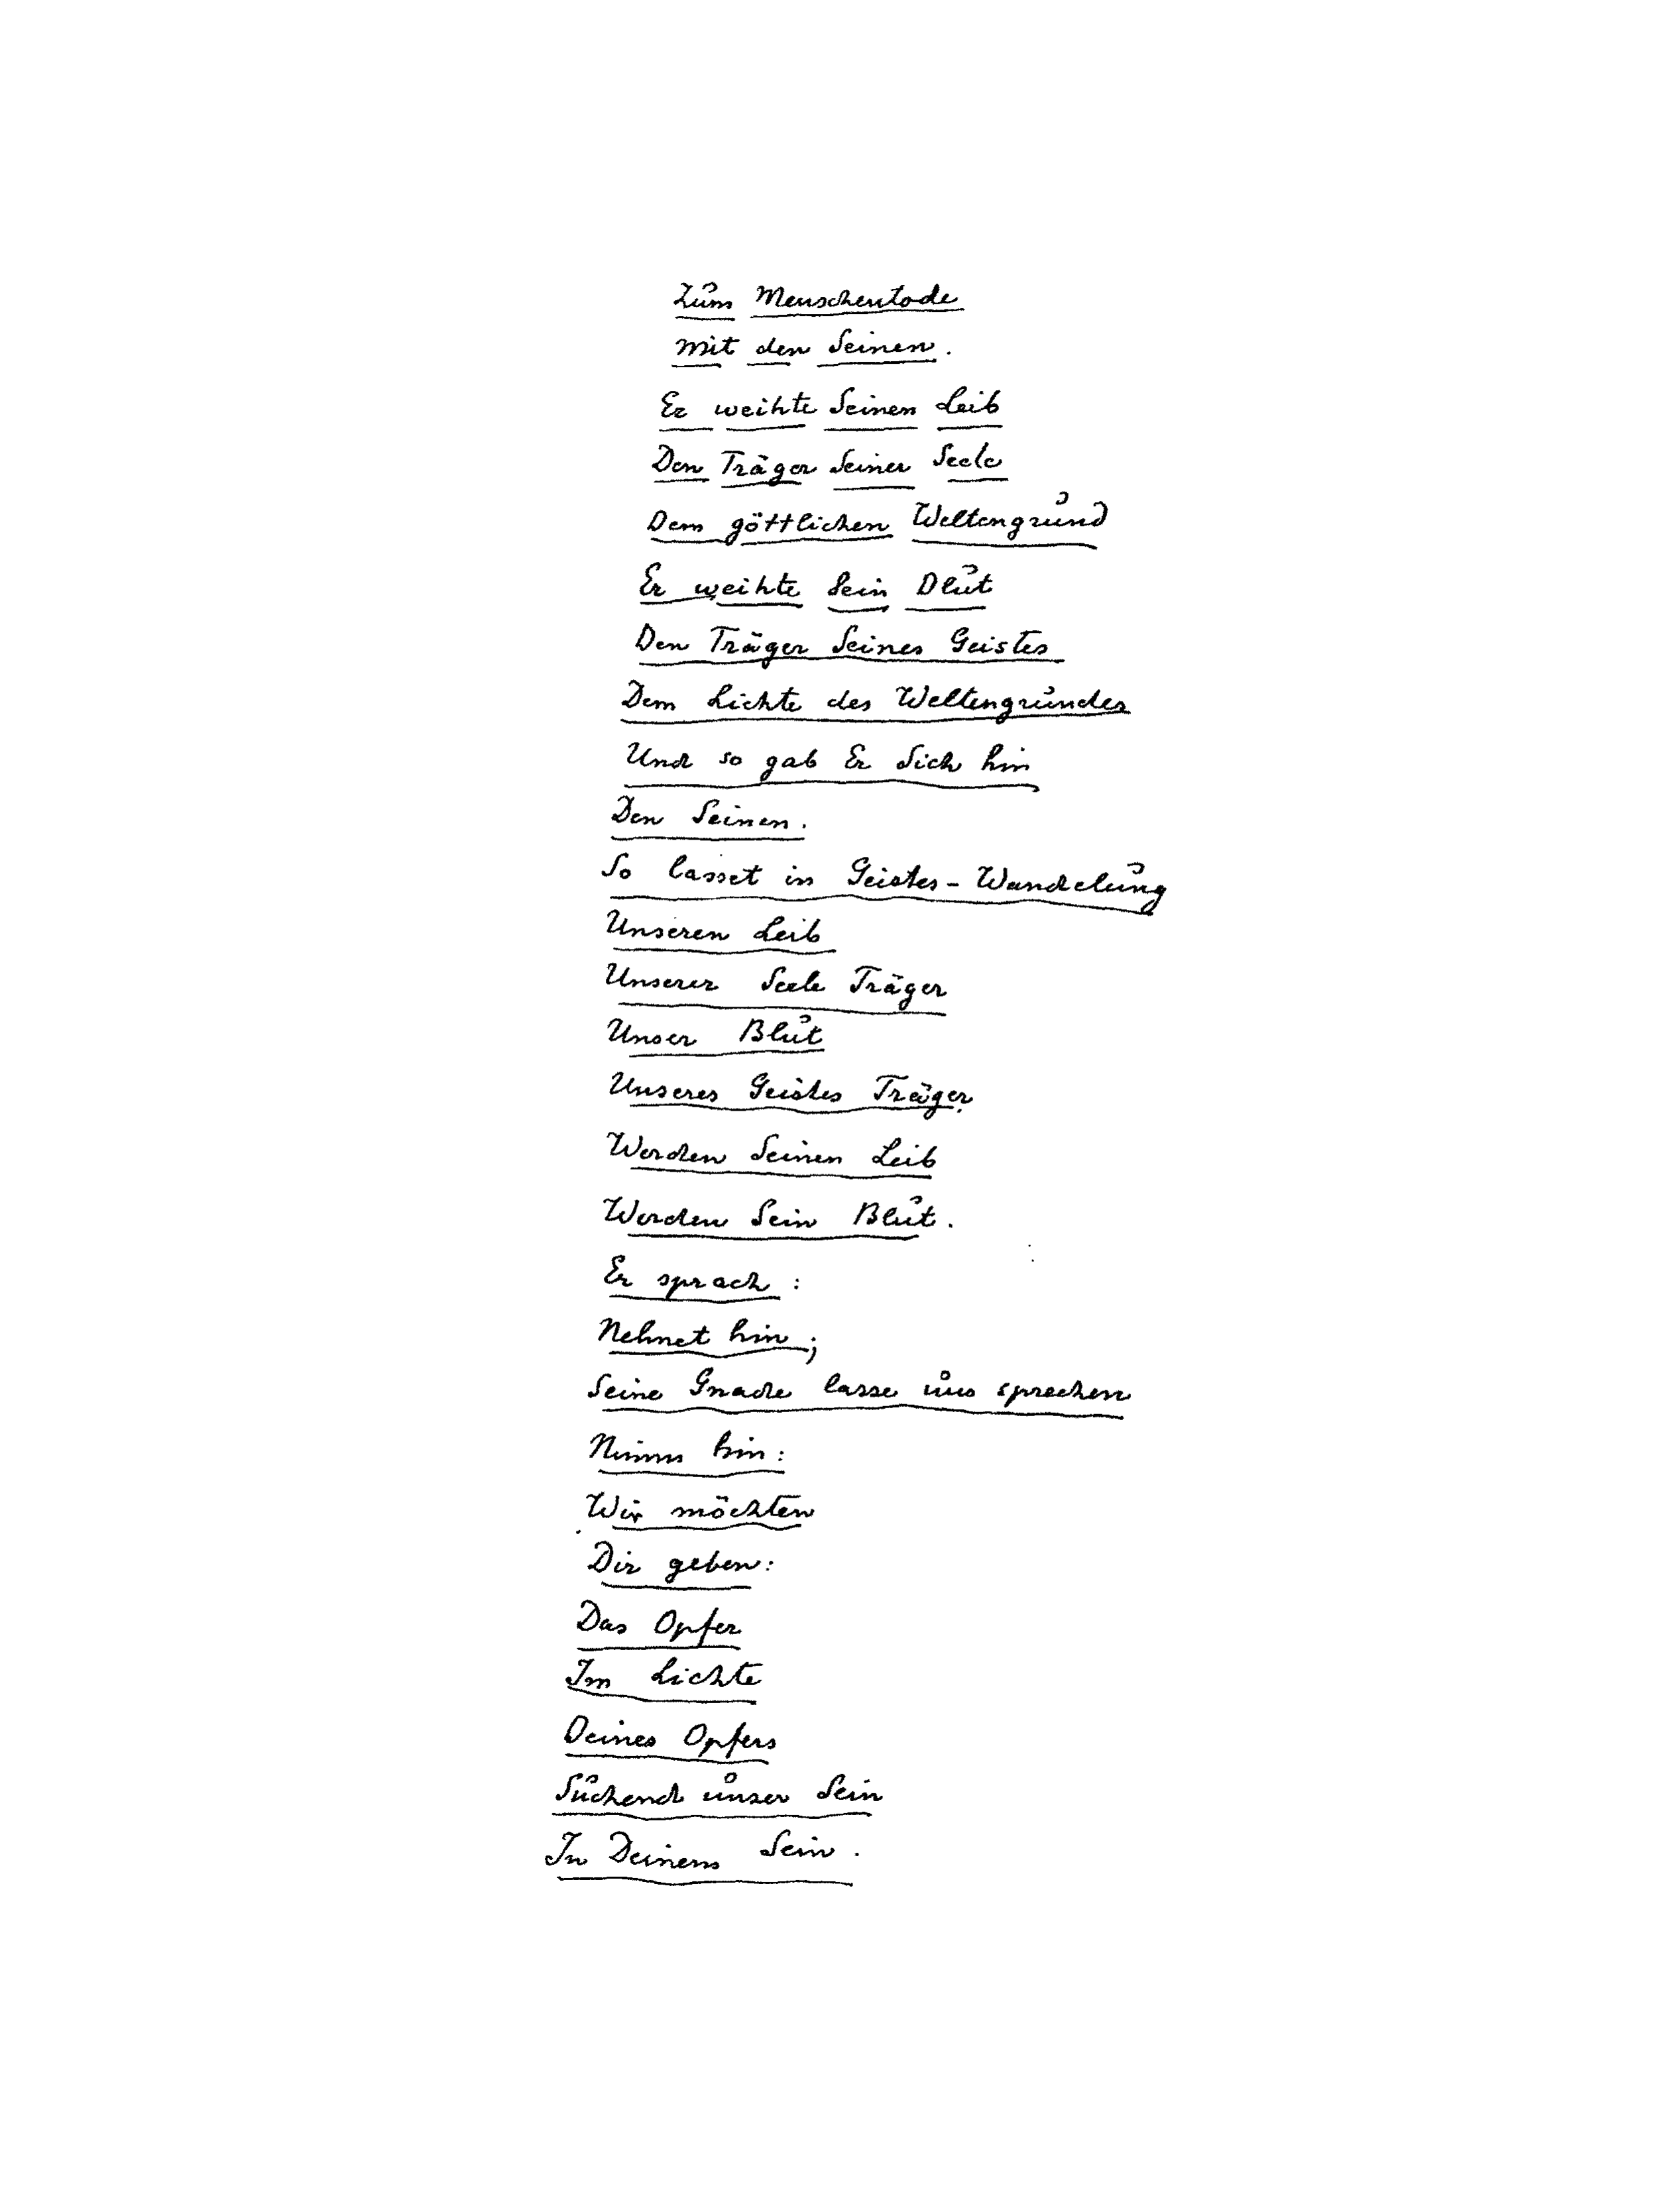 Zum Menschentode
Mit den Seinen.
Er weihte Seinen Leib
Den Träger Seiner Seele
Dem göttlichen Weltengrund
Er weihte Sein Blut
Den Träger Seines Geistes
Dem Lichte des Weltengrundes
Und so gab Er Sich hin
Den Seinen.
So lasset in Geistes-Wandelung
Unseren Leib
Unserer Seele Träger
Unser Blut
Unseres Geistes Träger
Werden Seinen Leib
Werden Sein Blut.
Er sprach:
Nehmet hin;
Seine Gnade lasse uns sprechen
Nimm hin:
Wir möchten
Dir geben:
Das Opfer
Im Lichte
Deines Opfers
Suchend unser Sein
In Deinem Sein.